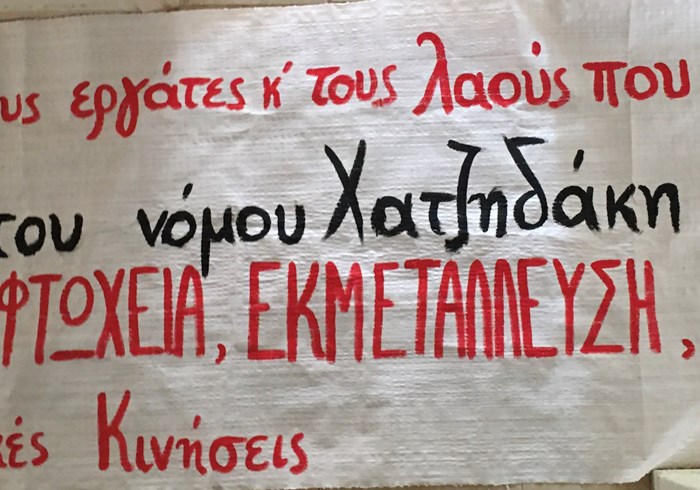 υς εργάτες κ' τους λαούς που
του νόμου Χατζηδάκη
ΦΤΩΧΕΙΑ, ΕΚΜΕΤΑΛΛΕΥΣΗ,
κές Κινήσεις